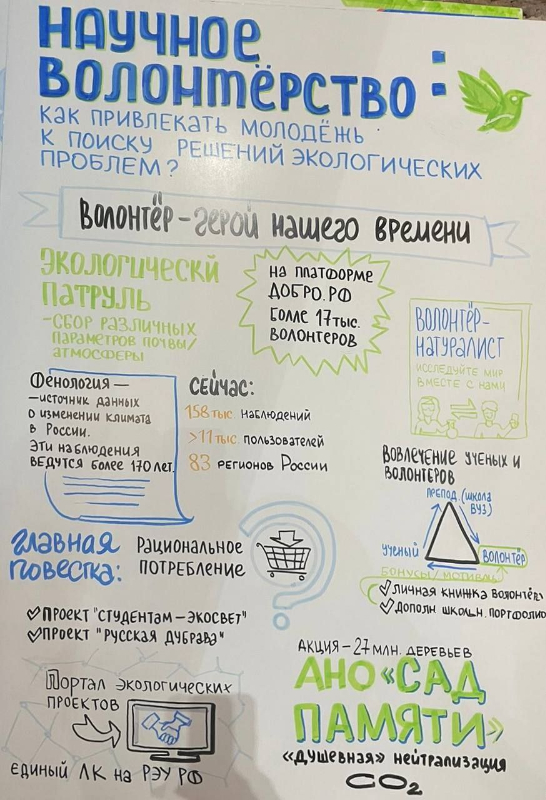 НАУЧНОЕ
ВОЛОНТЁРСТВО:
КАК ПРИВЛЕКАТЬ МОЛОДЁЖЬ
К ПОИСКУ РЕШЕНИЙ ЭКОЛОГИЧЕСКИХ
ПРОБЛЕМ?
ВОЛОНТЁР-ГЕРОЙ НАШЕГО ВРЕМЕНИ
ЭКОЛОГИЧЕСКЙ
ПАТРУЛЬ
-СБОР РАЗЛИЧНЫХ
ПАРАМЕТРОВ ПОЧВЫ/
АТМОСФЕРЫ
НА ПЛАТФОРМЕ
ДОБРО.РФ
БОЛЛЕ 17 ТЫС.
ВОЛОНТЕРОВ
ВОЛОНТЁР-
НАТУРАЛИСТ
ИССЛЕДУЙТЕ МИР
ВМЕСТЕ С НАМИ
ФЕНОЛОГИЯ —
—ИСТОЧНИК ДАННЫХ
О ИЗМЕНЕНИИ КЛИМАТА
В РОССИИ.
ЭТИ НАБЛЮДЕНИЯ
ВЕДУТСЯ БОЛЕЕ 170 ЛЕТ.
СЕЙЧАС:
158 ТЫС НАБЛЮДЕНИЙ
>11 ТЫС. ПОЛЬЗОВАТЕЛЕЙ
83 РЕГИОНОВ РОССИИ
ВОВЛЕЧЕНИЕ УЧЕНЫХ И
ВОЛОНТЕРОВ
ПРЕПОД. (ШКОЛА
ВУЗ)
УЧЕНЫЙ
ВОЛОНТЁР
БОНУСЫ/МОТИВАЦ
ЛИЧНАЯ КНИЖКА ВОЛОНТЁРА
ДОПОЛН ШКОЛЬН. ПОРТФОЛИО
ГЛАВНАЯ
ПОВЕСТКА:
РАЦИОНАЛЬНОЕ
ПОТРЕБЛЕНИЕ
?
ПРОЕКТ "СТУДЕНТАМ—ЭКОСВЕТ"
ПРОЕКТ "РУССКАЯ ДУБРАВА"
ПОРТАЛ ЭКОЛОГИЧЕСКИХ
ПРОЕКТОВ
ЕДИНЫЙ ЛК НА РЭУ РФ
АКЦИЯ — 27 МЛН. ДЕРЕВЬЕВ
АНО «САД
ПАМЯТИ»
«ДУШЕВНАЯ» НЕЙТРАЛИЗАЦИЯ
CO₂